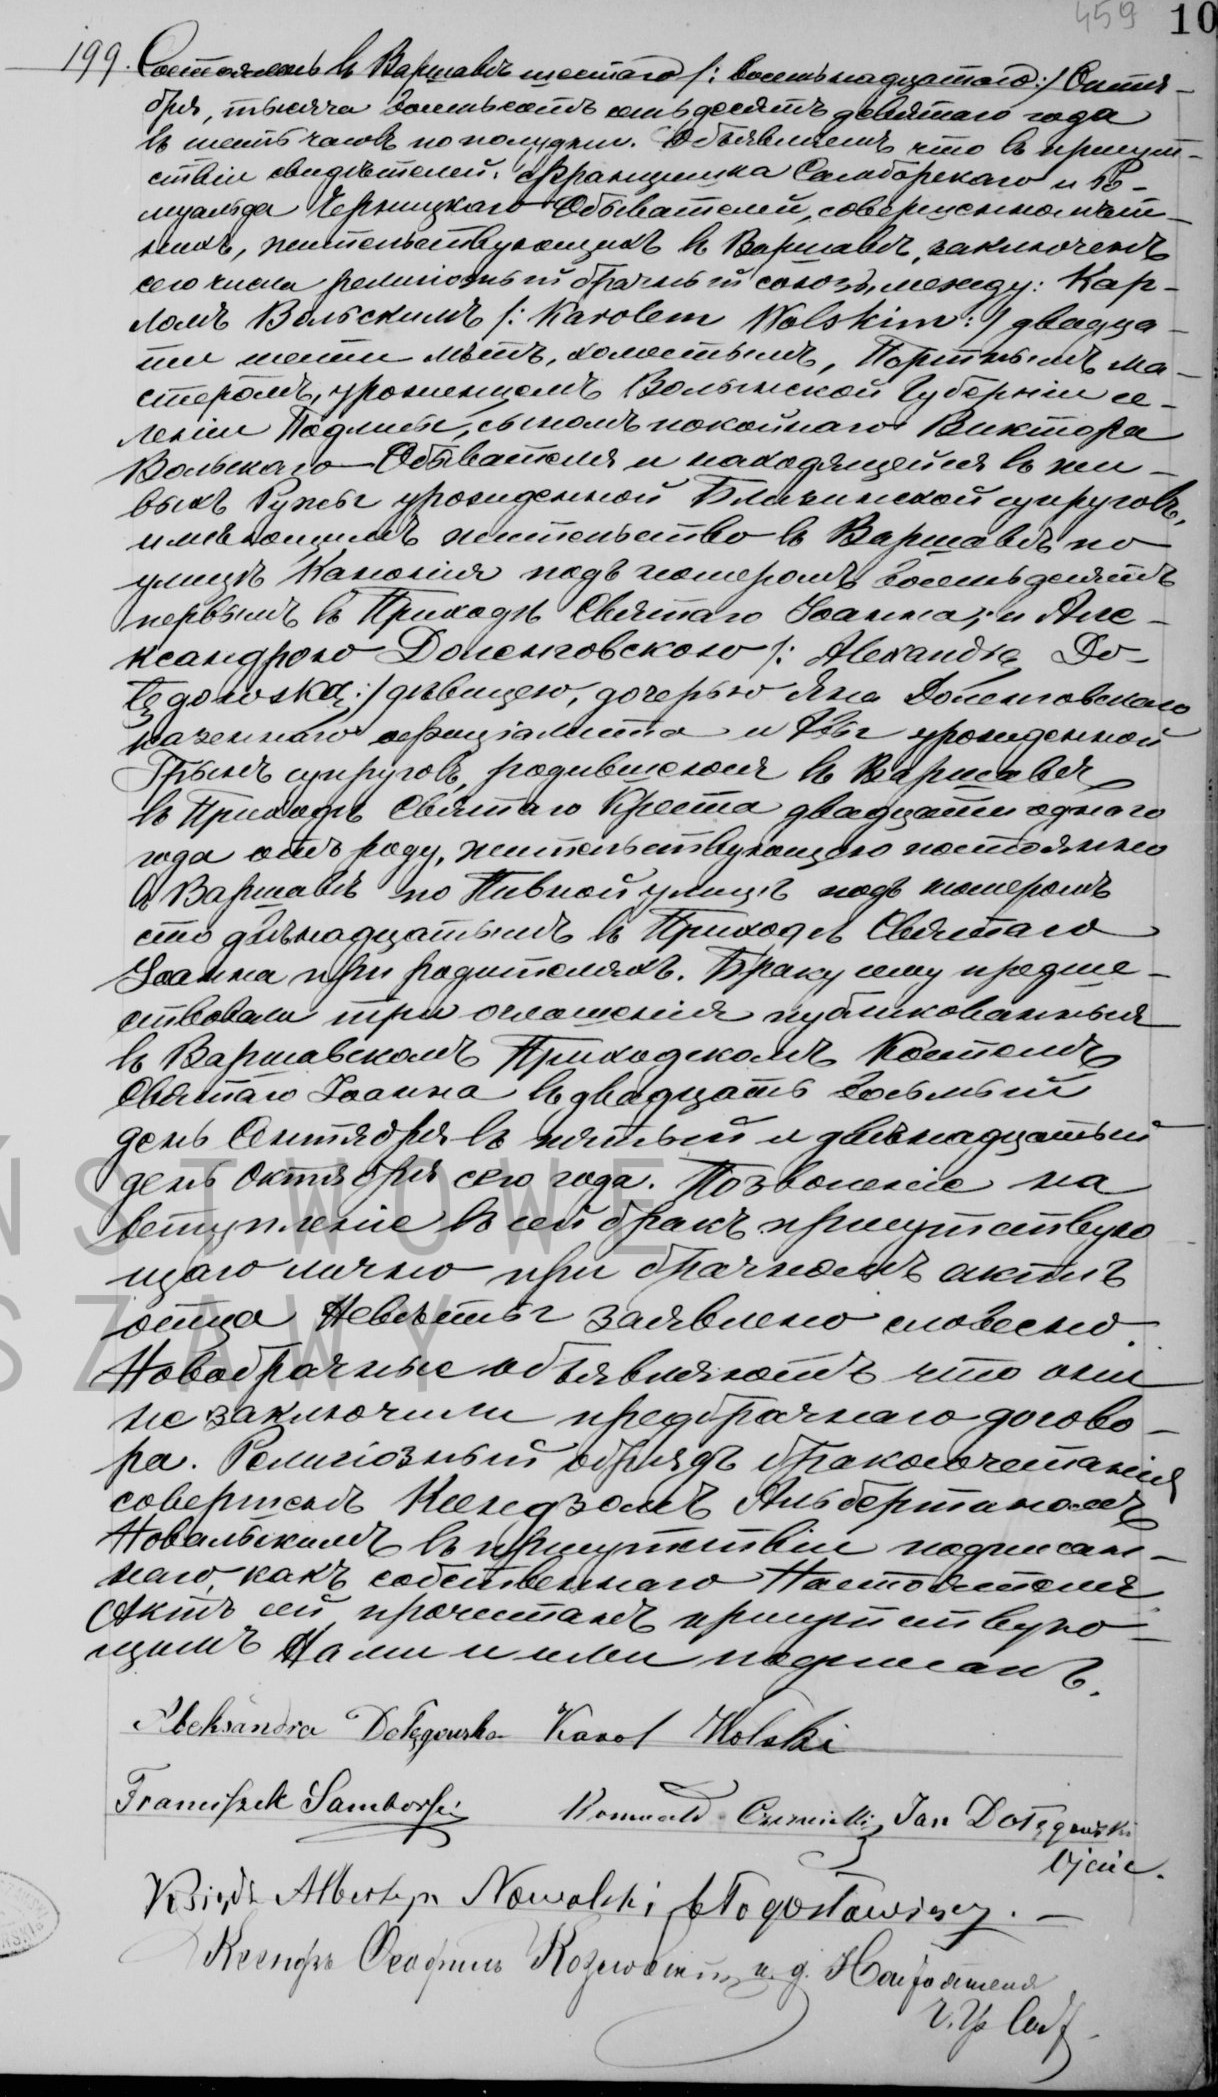 459 10
199. Состоялось въ Варшавѣ шестаго /: восемьнадцатаго :/ Октя-
бря, тысяча восемьсотъ семьдесятъ девятаго года
въ шесть часовъ по полудни. Объявляемъ что въ присут-
ствіи свидѣтелей: Францишка Самборскаго и Ро-
муальда Черницкаго Обывателей, совершеннолѣт-
нихъ, жительствующихъ въ Варшавѣ, заключенъ
сего числа религіозный брачный союзъ, между: Кар-
ломъ Вольскимъ /: Karolem Wolskim :/ двадца-
ти шести лѣтъ, холостымъ, Портнымъ ма-
стеромъ, уроженцемъ Волынской Губерніи се-
леніи Подлисы, сыномъ покойнаго Виктора
Вольскаго Обывателя и находящейся въ жи-
выхъ Ружы урожденной супруговъ,
имѣющимъ жительство въ Варшавѣ по
улицѣ Канонія подъ номеромъ восемьдесятъ
первымъ въ Приходѣ Святаго Іоанна; и Але-
ксандрою Доленговскою /: Alexandrą Do-
łęgowską :/ дѣвицею, дочерью Яна Доленговскаго
казеннаго оффиціалиста и Эвы урожденной
супруговъ, родившеюся въ Варшавѣ
въ Приходѣ Святаго Креста двадцати одного
года отъ роду, жительствующею постоянно
въ Варшавѣ по Пивной улицѣ подъ номеромъ
сто двѣнадцатымъ въ Приходѣ Святаго
Іоанна при родителяхъ. Браку сему предше-
ствовали три оглашенія публикованныя
въ Варшавскомъ Приходскомъ Костелѣ
Святаго Іоанна въ двадцать восьмый
день Сентября въ пятый и двѣнадцатый
день Октября сего года. Позволеніе на
вступленіе въ сей бракъ присутствую
щаго лично при брачномъ актѣ
отца Невѣсты заявлено словесно.
Новобрачные объявляютъ что они
не заключили предбрачнаго догово-
ра. Религіозный обрядъ бракосочетанія
совершенъ Ксендзомъ Альбертыномъ
Новальскимъ въ присутствіи подписан-
наго, какъ собственнаго Настоятеля
Актъ сей прочитанъ присутствую-
щимъ Нами и ими подписанъ.
Aleksandra Dołęgowska Karol Wolski
Franciszek Samborski Romuald Czernicki Jan Dołęgowski
Ojciec.
Ksiądz Albertyn Nowalski błogosławiący. —
Ксендзъ и. д. Настоятеля
Ч. Гр. Сост.
ŃSTWOWE
SZAWY